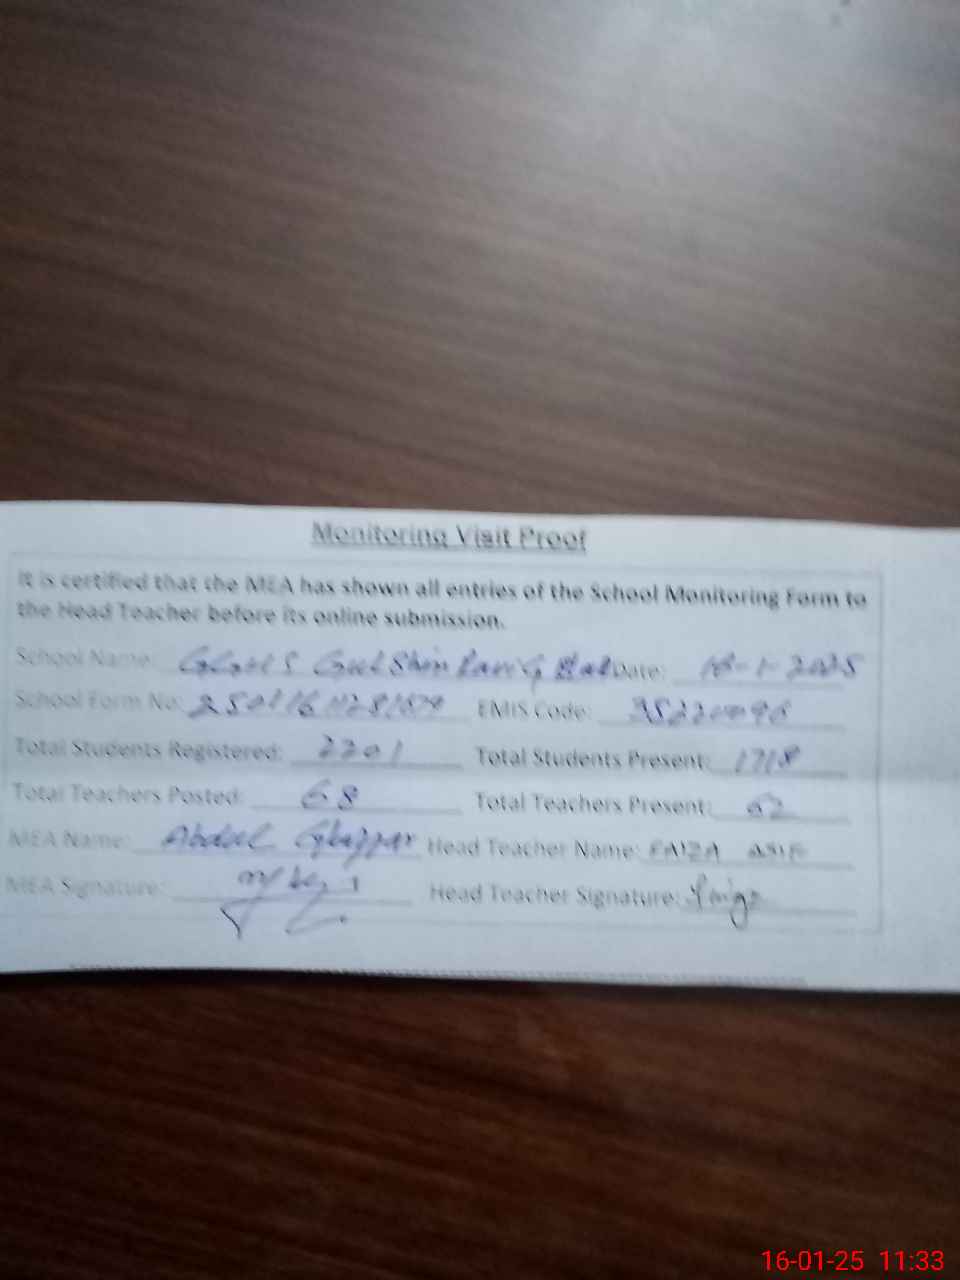 Monitoring Visit Proof
It is certified that the MEA has shown all entries of the School Monitoring Form to
the Head Teacher before its online submission.
School Name: Date: 16-1-2025
School Form No: EMIS Code:
Total Students Registered: 2201 Total Students Present: 1718
Total Teachers Posted: 68 Total Teachers Present: 62
MEA Name: Abdul Ghaffar Head Teacher Name: FAIZA ASIF
MEA Signature: Head Teacher Signature:
16-01-25 11:33